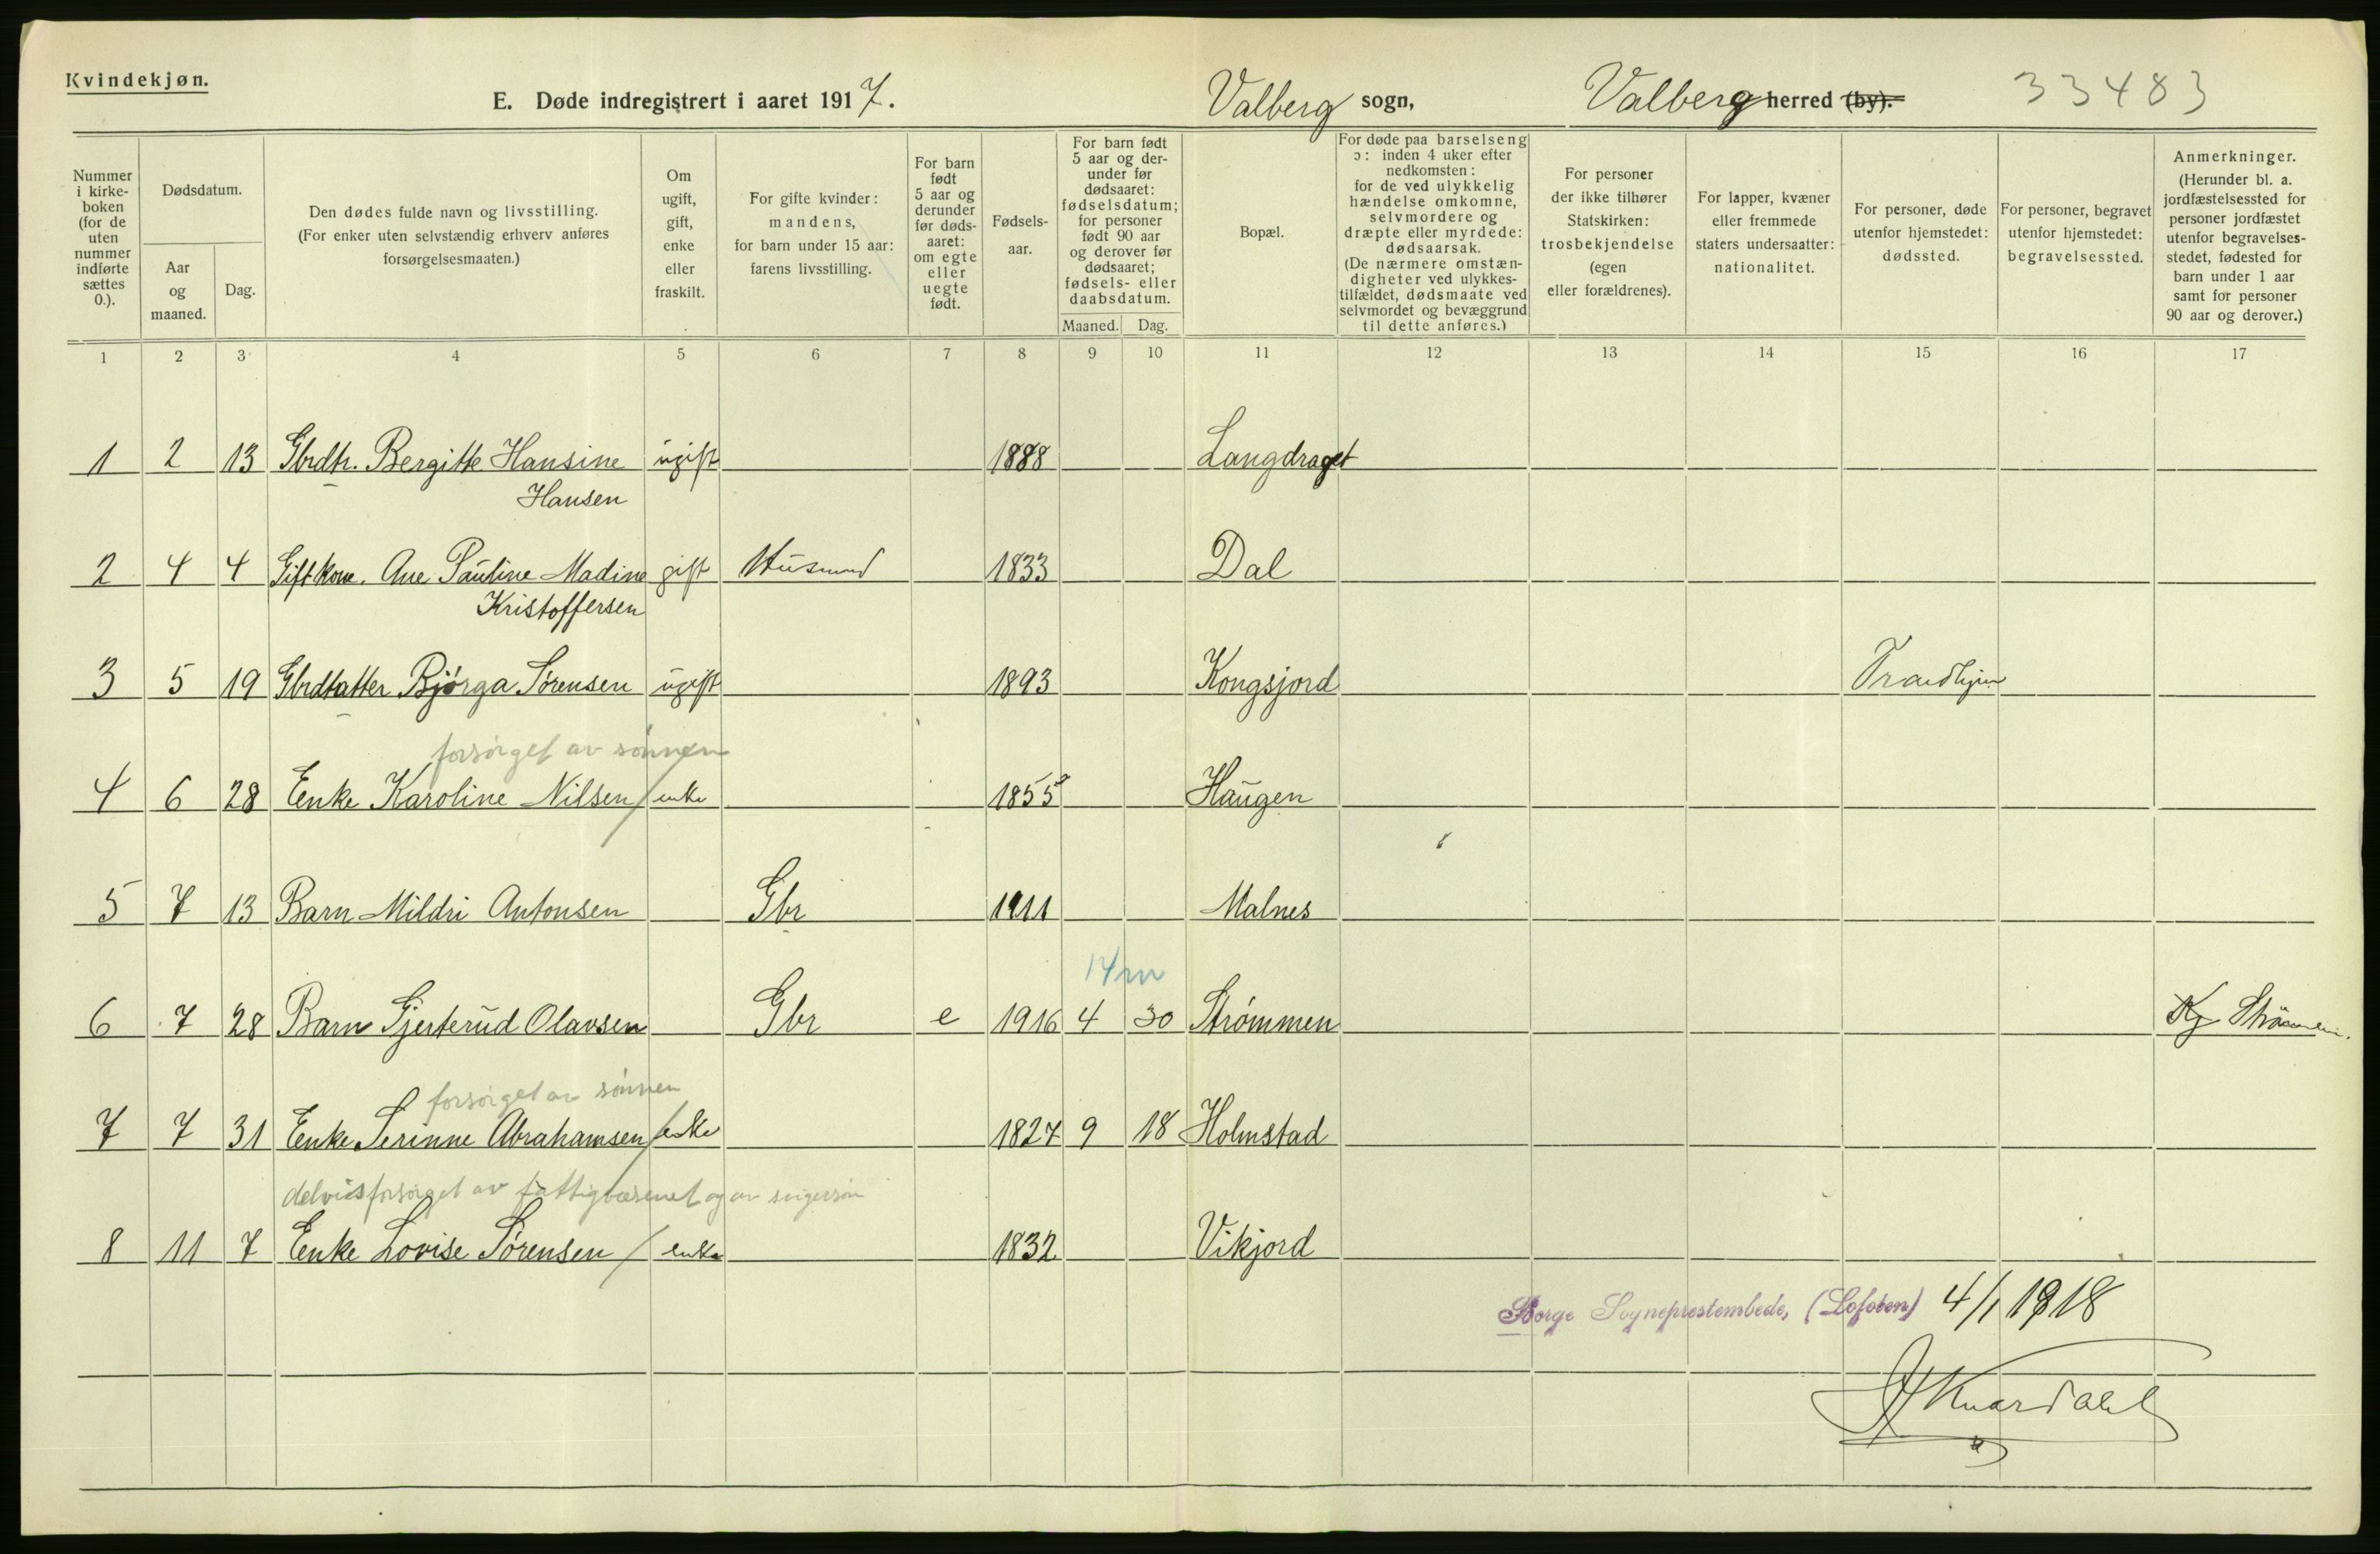 Kvindekjøn.
E. Døde indregistrert i aaret 1917. Valberg sogn, Valberg herred (by). 33483
Nummer i kirke- boken (for de uten nummer indførte sættes 0.).
Dødsdatum.
Aar og maaned.
Dag.
Den dødes fulde navn og livsstilling.
(For enker uten selvstændig erhverv anføres
forsørgelsesmaaten.)
Om ugift, gift, enke eller fraskilt.
For gifte kvinder: mandens, for barn under 15 aar: farens livsstilling.
For barn født 5 aar og derunder før døds- aaret: om egte eller uegte født.
Fødsels- aar.
For barn født 5 aar og der- under før dødsaaret: fødselsdatum; for personer født 90 aar og derover før dødsaaret; fødsels- eller daabsdatum.
Maaned. Dag.
Bopæl.
For døde paa barselseng ɔ: inden 4 uker efter nedkomsten: for de ved ulykkelig hændelse omkomne, selvmordere og dræpte eller myrdede: dødsaarsak. (De nærmere omstæn- digheter ved ulykkes- tilfældet, dødsmaate ved selvmordet og bevæggrund til dette anføres.)
For personer der ikke tilhører Statskirken: trosbekjendelse (egen eller forældrenes).
For lapper, kvæner eller fremmede staters undersaatter: nationalitet.
For personer, døde utenfor hjemstedet: dødssted.
For personer, begravet utenfor hjemstedet: begravelsessted.
Anmerkninger. (Herunder bl. a. jordfæstelsessted for personer jordfæstet utenfor begravelses- stedet, fødested for barn under 1 aar samt for personer 90 aar og derover.)
1 2 3 4 5 6 7 8 9 10 11 12 13 14 15 16 17
1 2 13 Gbrdtr. Bergitte Hansine ugift 1888 Langdraget
Hansen
2 4 4 Gift kone. Ane Pauline Madine gift Husmand 1833 Dal
Kristoffersen
3 5 19 Gbrdatter Bjørga Sørensen ugift 1893 Kongsjord Trondhjem
forsørget av sønnen
4 6 28 Enke Karoline Nilsen / enke 1855 Haugen
5 7 13 Barn Mildri Antonsen Gbr 1911 Malnes
14 m
6 7 28 Barn Gjerterud Olavsen Gbr e 1916 4 30 Strømmen
forsørget av sønnen
7 7 31 Enke Serinne Abrahamsen / enke 1827 9 18 Holmstad
delvis forsørget av fattigvæsenet og av svigersøn
8 11 7 Enke Lovise Sørensen / enke 1832 Vikjord
Borge Sogneprestembede, (Lofoten) 4/1 1918